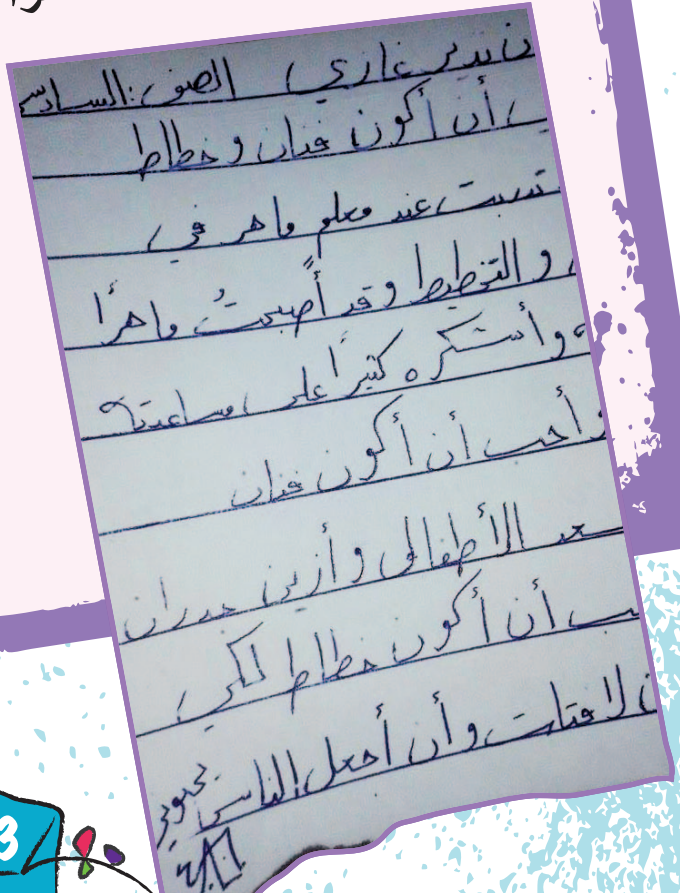 ن نذير غازي الصف: السادس
ب أن أكون فنان و خطاط
تدربت عند معلم ماهر في
و التخطيط وقد أصبحتُ ماهراً
وأشكره كثيراً على مساعدته
و أحب أن أكون فنان
سعد الأطفال وأزين جدران
حب أن أكون خطاط لكي
لافتات وأن أجعل الناس يحبون
3